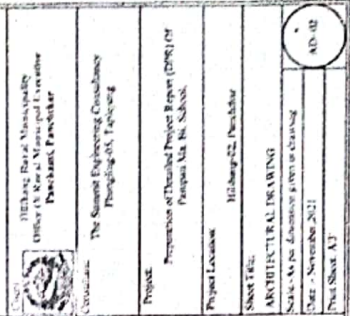 Client:
Hilihang Rural Municipality
Office Of Rural Municipal Executive
Panchami, Panchthar
Consultant:
The Summit Engineering Consultancy
Phungling-05, Taplejung
Project:
Preparation of Detailed Project Report (DPR) Of
School
Project Location:
Hilihang-02, Panchthar
Sheet Title:
ARCHITECTURAL DRAWING
Scale:- As per dimension given in drawing
Date: - November 2021
Print Sheet: A3
AD-02